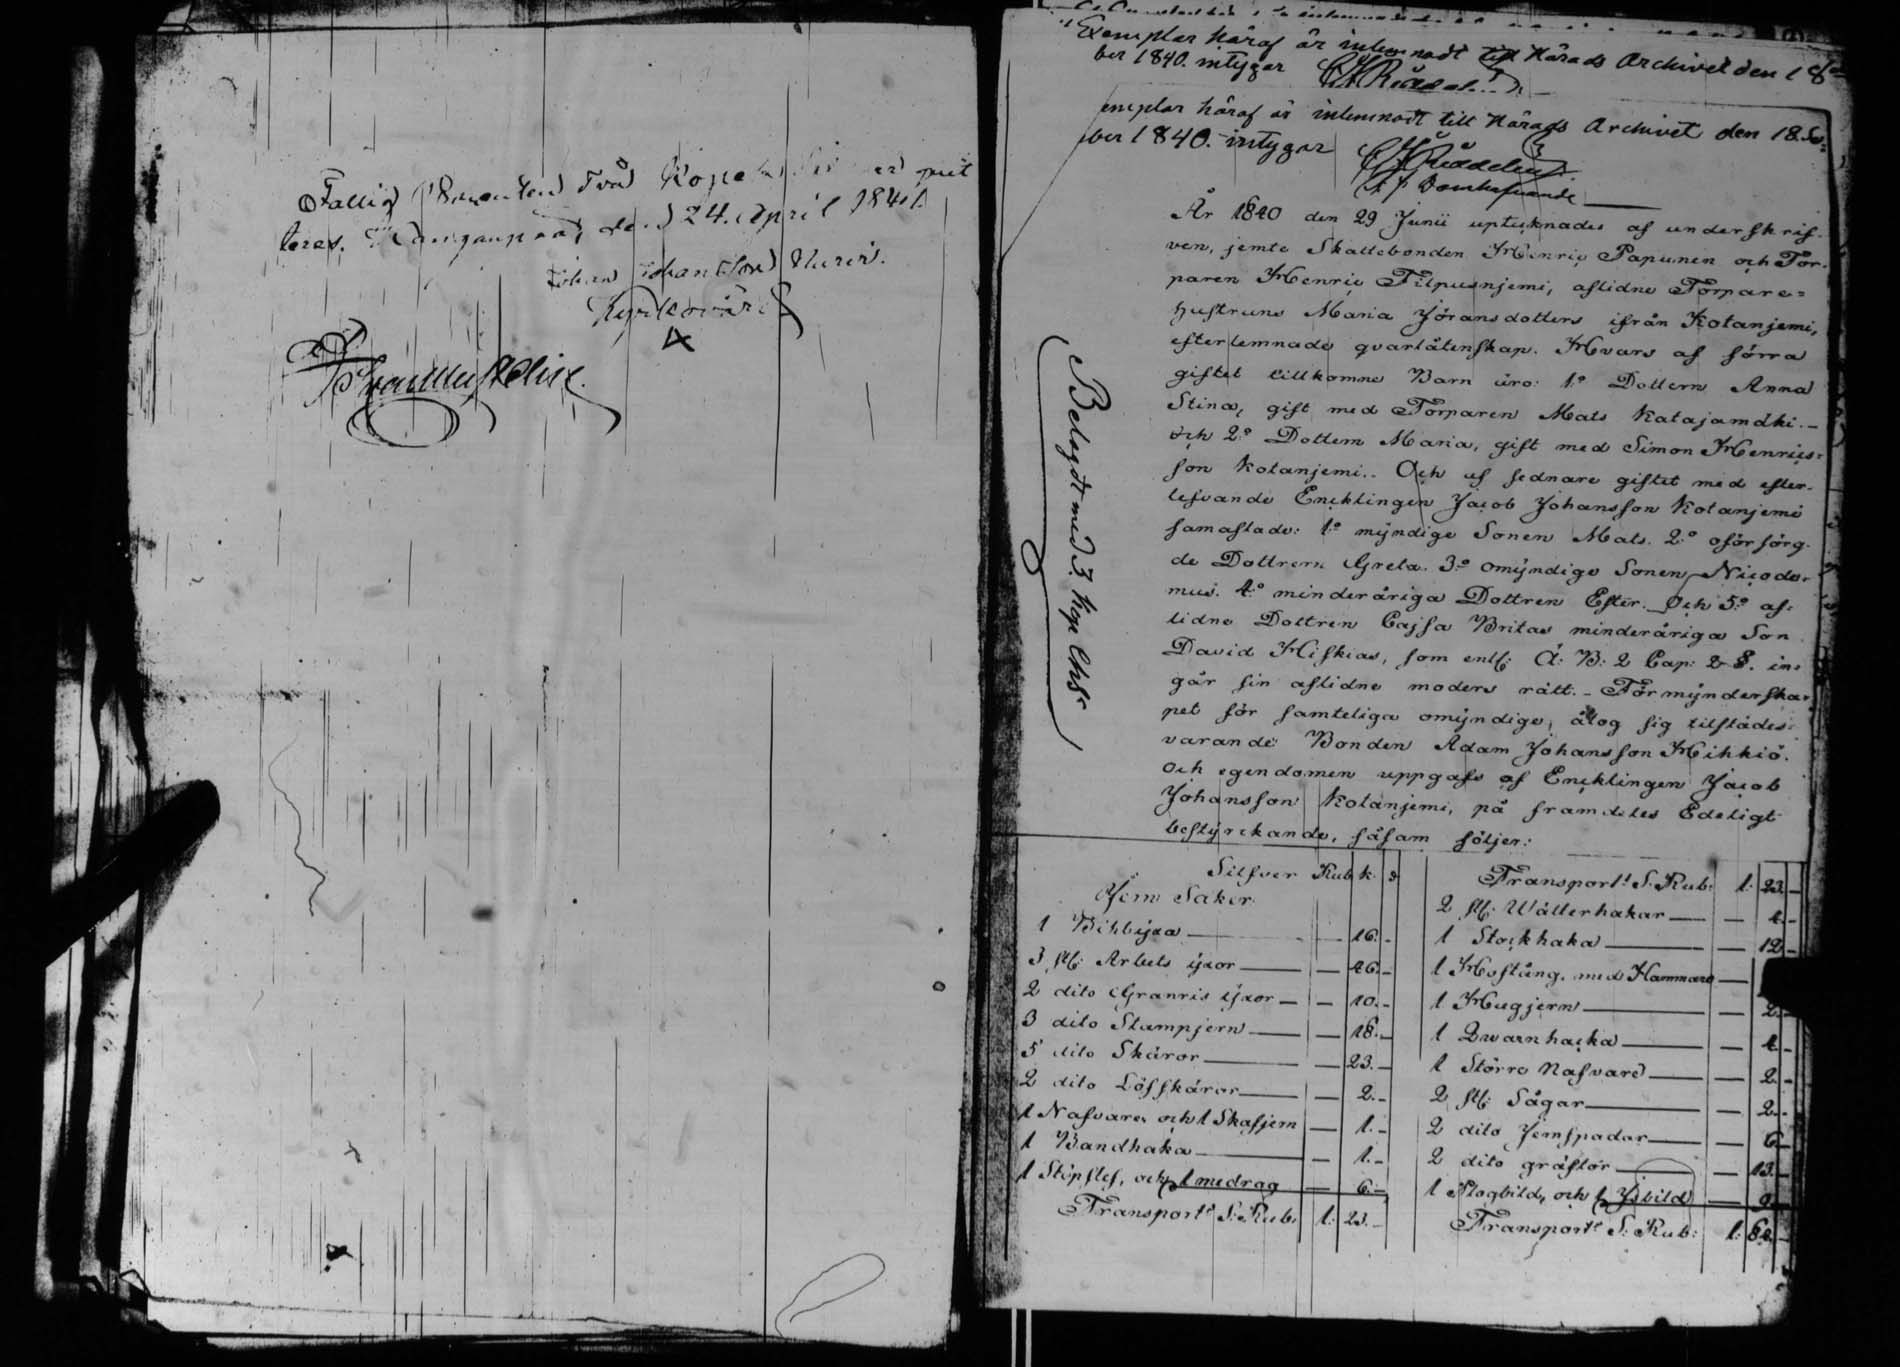 Fattig Procenten Två Kopek Silfver quit
teras. Kangasniemi den 24. April 1841.
Johan Johansson
Kyrkovärd
Exemplar häraf är inlemnadt till Härads Archivet den 18
ber 1840. intygar
emplar häraf är inlemnadt till Härads Archivet den 18.
ber 1840. intygar
Domhafvande
År 1840 den 29 Junii uptecknades af underskrif-
ven, jemte Skattebonden Henric Papunen och Tor-
paren Henric Filpusnjemi, aflidne Torpare-
hustruns Maria Jöransdotters ifrån Kotanjemi,
efterlemnade qvarlåtenskap. Hvars af förra
giftet tillkomne Barn äro: 1:o Dottern Anna
Stina, gift med Torparen Mats Katajamäki. -
och 2:o Dottern Maria, gift med Simon Henrics-
son Kotanjemi. Och af sednare giftet med efter-
lefvande Encklingen Jacob Johansson Kotanjemi
samaflade: 1:o myndige Sonen Mats. 2:o oförsörg-
de Dottren Greta. 3:o omyndige Sonen Nicode-
mus. 4:o minderåriga Dottren Ester. Och 5:o af-
lidne Dottren Cajsa Britas minderåriga Son
David Hiskias, som enl: Ä: B: 2 Cap: 2 §. in-
går sin aflidne moders rätt. - Förmynderska-
pet för samteliga omyndige, åtog sig tillstädes-
varande Bonden Adam Johansson Hihkiö.
Och egendomen uppgafs af Encklingen Jacob
Johansson Kotanjemi, på framdeles Edeligt
bestyrckande, såsom följer:
Belagdt med 3. Kop. Chs
Silfver Rub k.
Jern Saker.
1 Bihlyxa — 16. -
3 st: Arbets yxor — 46. -
2 dito Granris yxor — 10. -
3 dito Stampjern — 18. -
5 dito Skäror — 23. -
2 dito Löfskäror — 2. -
1 Nafvare och 1 Skafjern — 1. -
1 Bandhaka — 1. -
1 Stöpslef, och 1 medrag — 6. -
Transport S: Rub: 1: 23. -
Transport S: Rub: 1: 23. -
2 st: Wälterhakar — 4. -
1 Stockhaka — 12 -
1 Hoftång, med Hammare —
1 Hugjern — 2. -
1 Qwarnhacka — 4 -
1 Större Nafvare — 2 -
2 st: Sågar — 2 -
2 dito Jernspadar — 6 -
2 dito gräftor — 13. -
1 Plogbild, och 1 Jsbild — 9 -
Transport S: Rub: